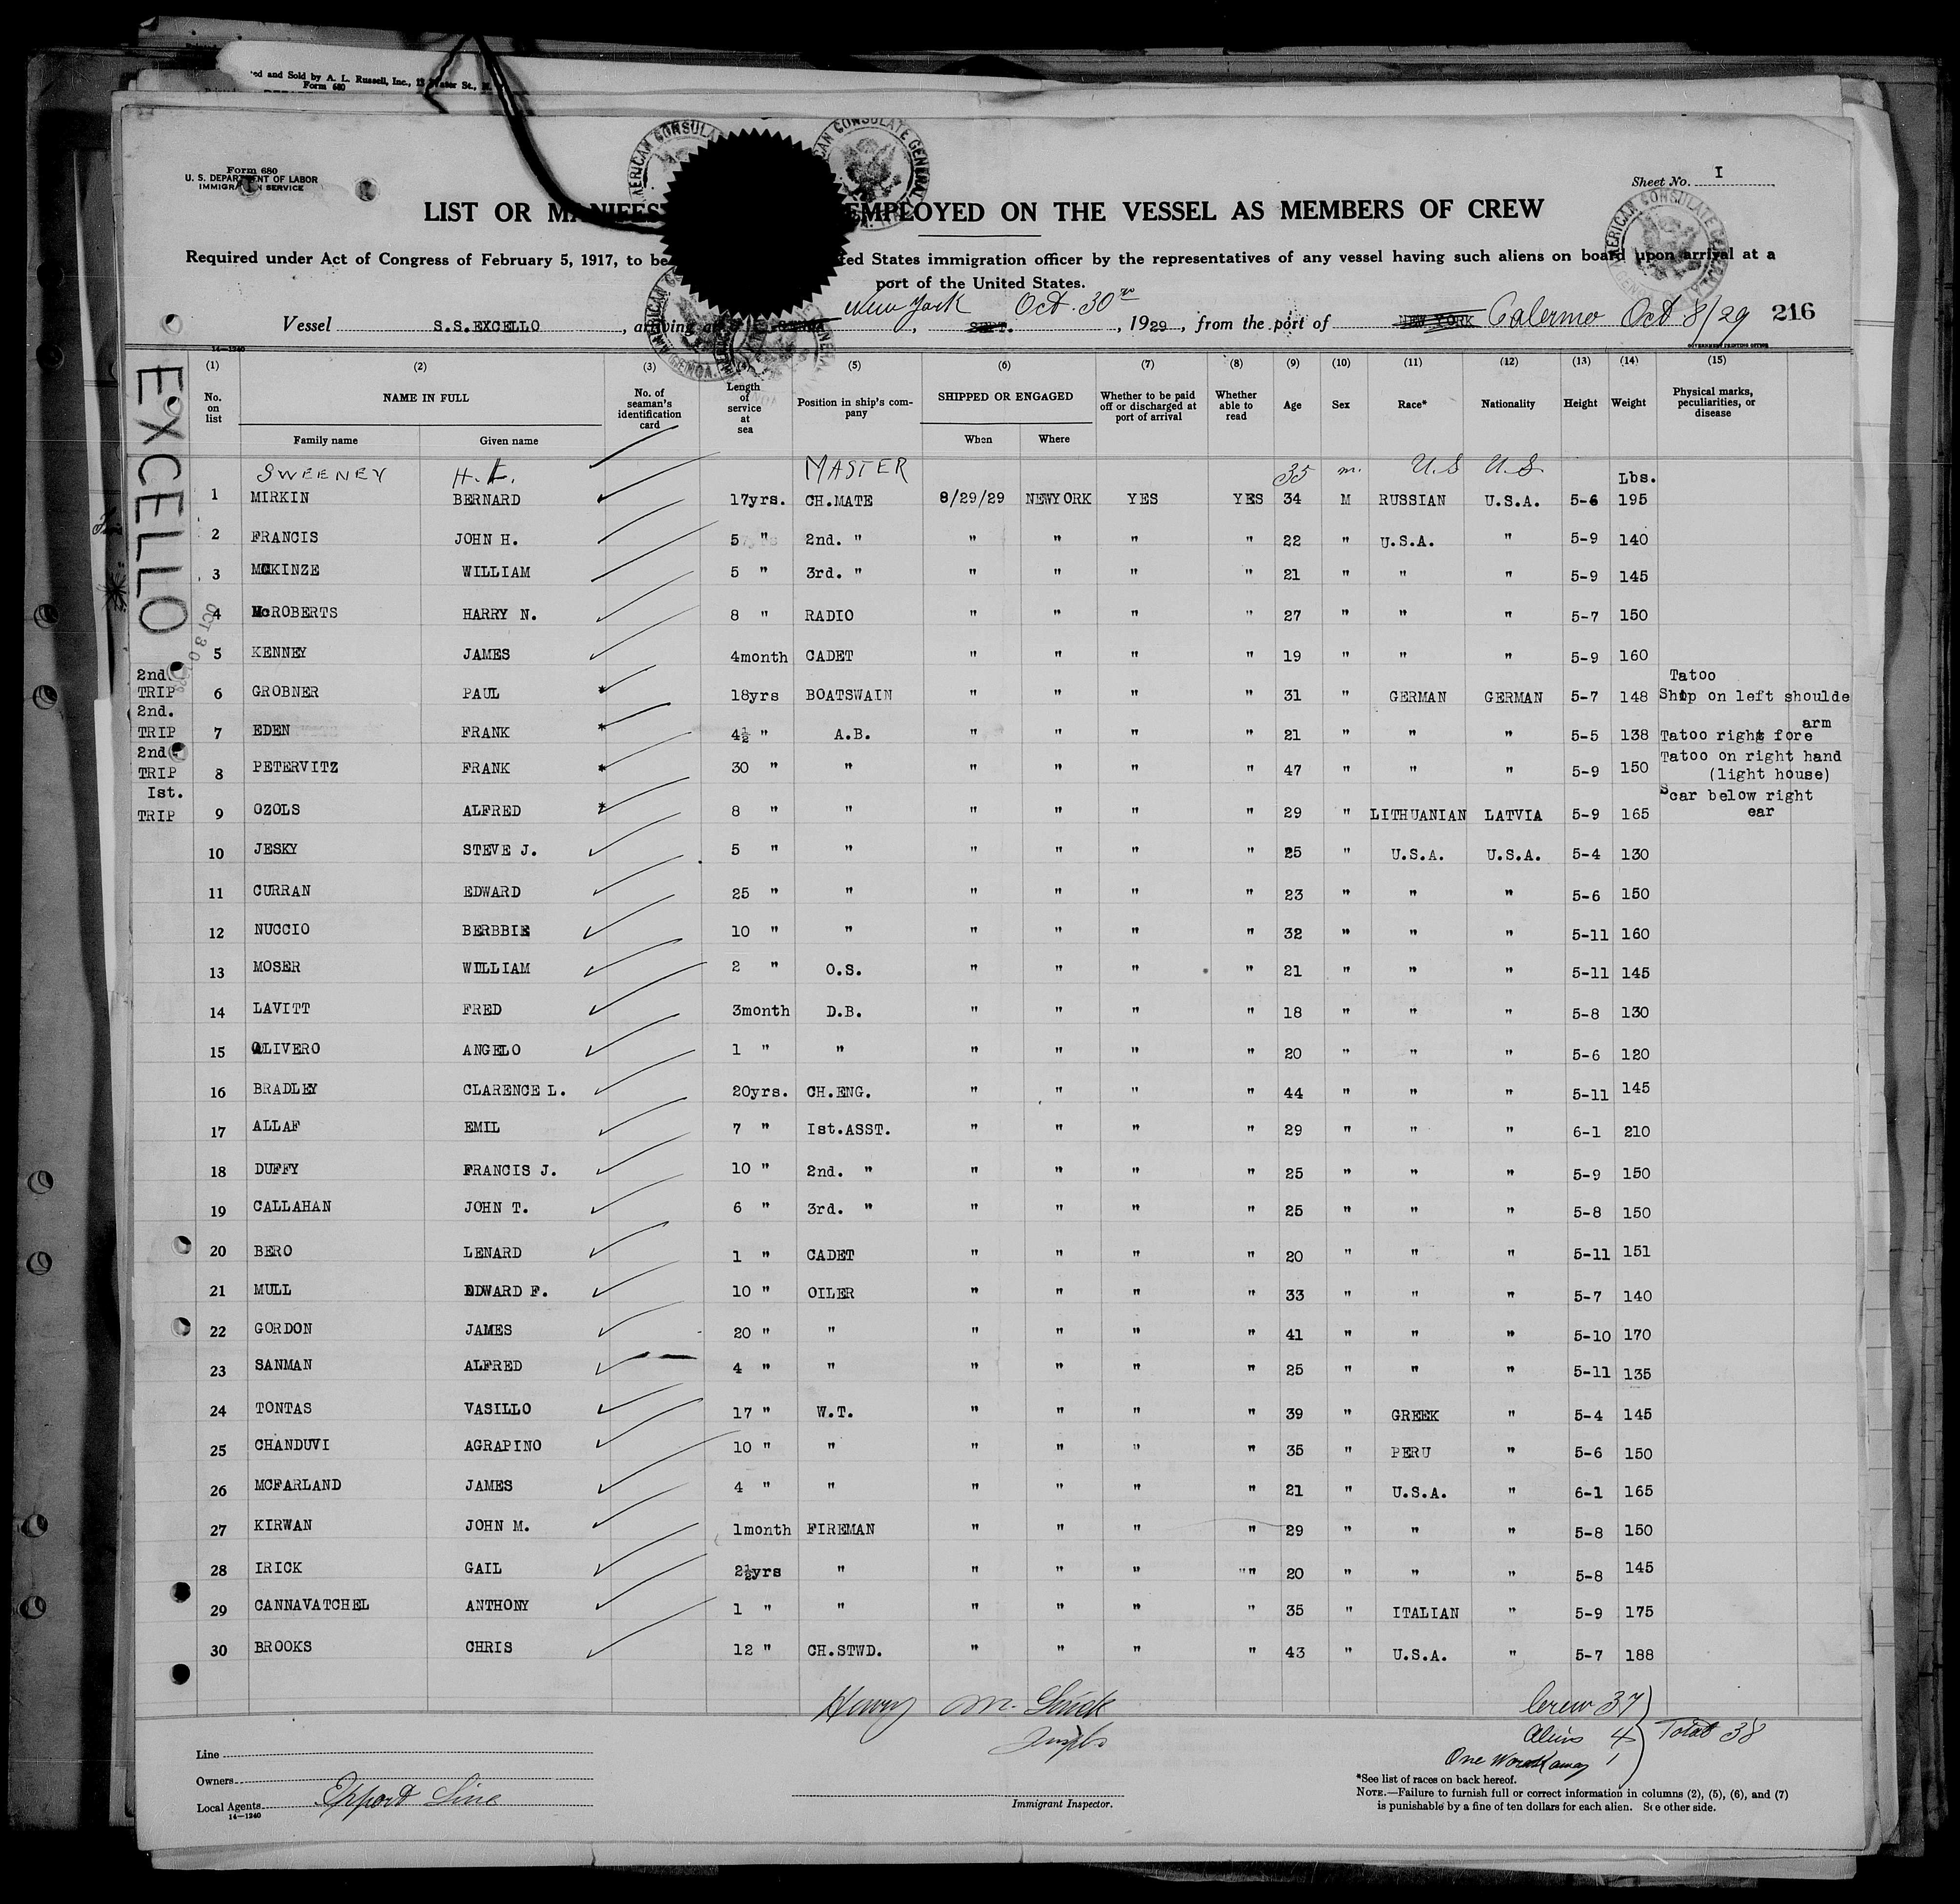 ted and Sold by A. L. Russell, Inc., 13 Water St., N.
Form 680
Form 680
U. S. DEPARTMENT OF LABOR
IMMIGRATION SERVICE
Sheet No. I
LIST OR MANIFEST EMPLOYED ON THE VESSEL AS MEMBERS OF CREW
Required under Act of Congress of February 5, 1917, to be ted States immigration officer by the representatives of any vessel having such aliens on board upon arrival at a
port of the United States.
New York Oct. 30
Vessel S.S.EXCELLO, arriving at GENOA, SEPT., 1929, from the port of NEW YORK Palermo Oct 8/29 216
14—1240 GOVERNMENT PRINTING OFFICE
AMERICAN CONSULATE GENERAL
GENOA
EXCELLO
OCT 30
(1) (2) (3) (5) (6) (7) (8) (9) (10) (11) (12) (13) (14) (15)
No. on list NAME IN FULL No. of seaman's identification card Length of service at sea Position in ship's company SHIPPED OR ENGAGED Whether to be paid off or discharged at port of arrival Whether able to read Age Sex Race* Nationality Height Weight Physical marks, peculiarities, or disease
Family name Given name When Where
SWEENEY H. L. MASTER 35 m. U.S U.S. Lbs.
1 MIRKIN BERNARD 17yrs. CH.MATE 8/29/29 NEWYORK YES YES 34 M RUSSIAN U.S.A. 5-6 195
2 FRANCIS JOHN H. 5 " 2nd. " " " " " 22 " U.S.A. " 5-9 140
3 MCKINZE WILLIAM 5 " 3rd. " " " " " 21 " " " 5-9 145
4 McROBERTS HARRY N. 8 " RADIO " " " " 27 " " " 5-7 150
5 KENNEY JAMES 4month CADET " " " " 19 " " " 5-9 160
2nd. TRIP 6 GROBNER PAUL * 18yrs BOATSWAIN " " " " 31 " GERMAN GERMAN 5-7 148 Tatoo Ship on left shoulde
2nd. TRIP 7 EDEN FRANK * 4½ " A.B. " " " " 21 " " " 5-5 138 Tatoo right fore arm
2nd. TRIP 8 PETERVITZ FRANK * 30 " " " " " " 47 " " " 5-9 150 Tatoo on right hand (light house)
Ist. TRIP 9 OZOLS ALFRED * 8 " " " " " " 29 " LITHUANIAN LATVIA 5-9 165 Scar below right ear
10 JESKY STEVE J. 5 " " " " " " 25 " U.S.A. U.S.A. 5-4 130
11 CURRAN EDWARD 25 " " " " " " 23 " " " 5-6 150
12 NUCCIO BERBBIE 10 " " " " " " 32 " " " 5-11 160
13 MOSER WILLIAM 2 " O.S. " " " " 21 " " " 5-11 145
14 LAVITT FRED 3month D.B. " " " " 18 " " " 5-8 130
15 OLIVERO ANGELO 1 " " " " " " 20 " " " 5-6 120
16 BRADLEY CLARENCE L. 20yrs. CH.ENG. " " " " 44 " " " 5-11 145
17 ALLAF EMIL 7 " Ist.ASST. " " " " 29 " " " 6-1 210
18 DUFFY FRANCIS J. 10 " 2nd. " " " " " 25 " " " 5-9 150
19 CALLAHAN JOHN T. 6 " 3rd. " " " " " 25 " " " 5-8 150
20 BERO LENARD 1 " CADET " " " " 20 " " " 5-11 151
21 MULL EDWARD F. 10 " OILER " " " " 33 " " " 5-7 140
22 GORDON JAMES 20 " " " " " " 41 " " " 5-10 170
23 SANMAN ALFRED 4 " " " " " " 25 " " " 5-11 135
24 TONTAS VASILLO 17 " W.T. " " " " 39 " GREEK " 5-4 145
25 CHANDUVI AGRAPINO 10 " " " " " " 35 " PERU " 5-6 150
26 MCFARLAND JAMES 4 " " " " " " 21 " U.S.A. " 6-1 165
27 KIRWAN JOHN M. 1month FIREMAN " " " " 29 " " " 5-8 150
28 IRICK GAIL 2½yrs " " " " "" 20 " " " 5-8 145
29 CANNAVATCHEL ANTHONY 1 " " " " " " 35 " ITALIAN " 5-9 175
30 BROOKS CHRIS 12 " CH.STWD. " " " " 43 " U.S.A. " 5-7 188
Henry M.
Crew 37
Aliens 4 Total 38
One Workaway 1
Line
Owners
Local Agents Export Line
14—1240
Immigrant Inspector.
*See list of races on back hereof.
NOTE.—Failure to furnish full or correct information in columns (2), (5), (6), and (7)
is punishable by a fine of ten dollars for each alien. See other side.